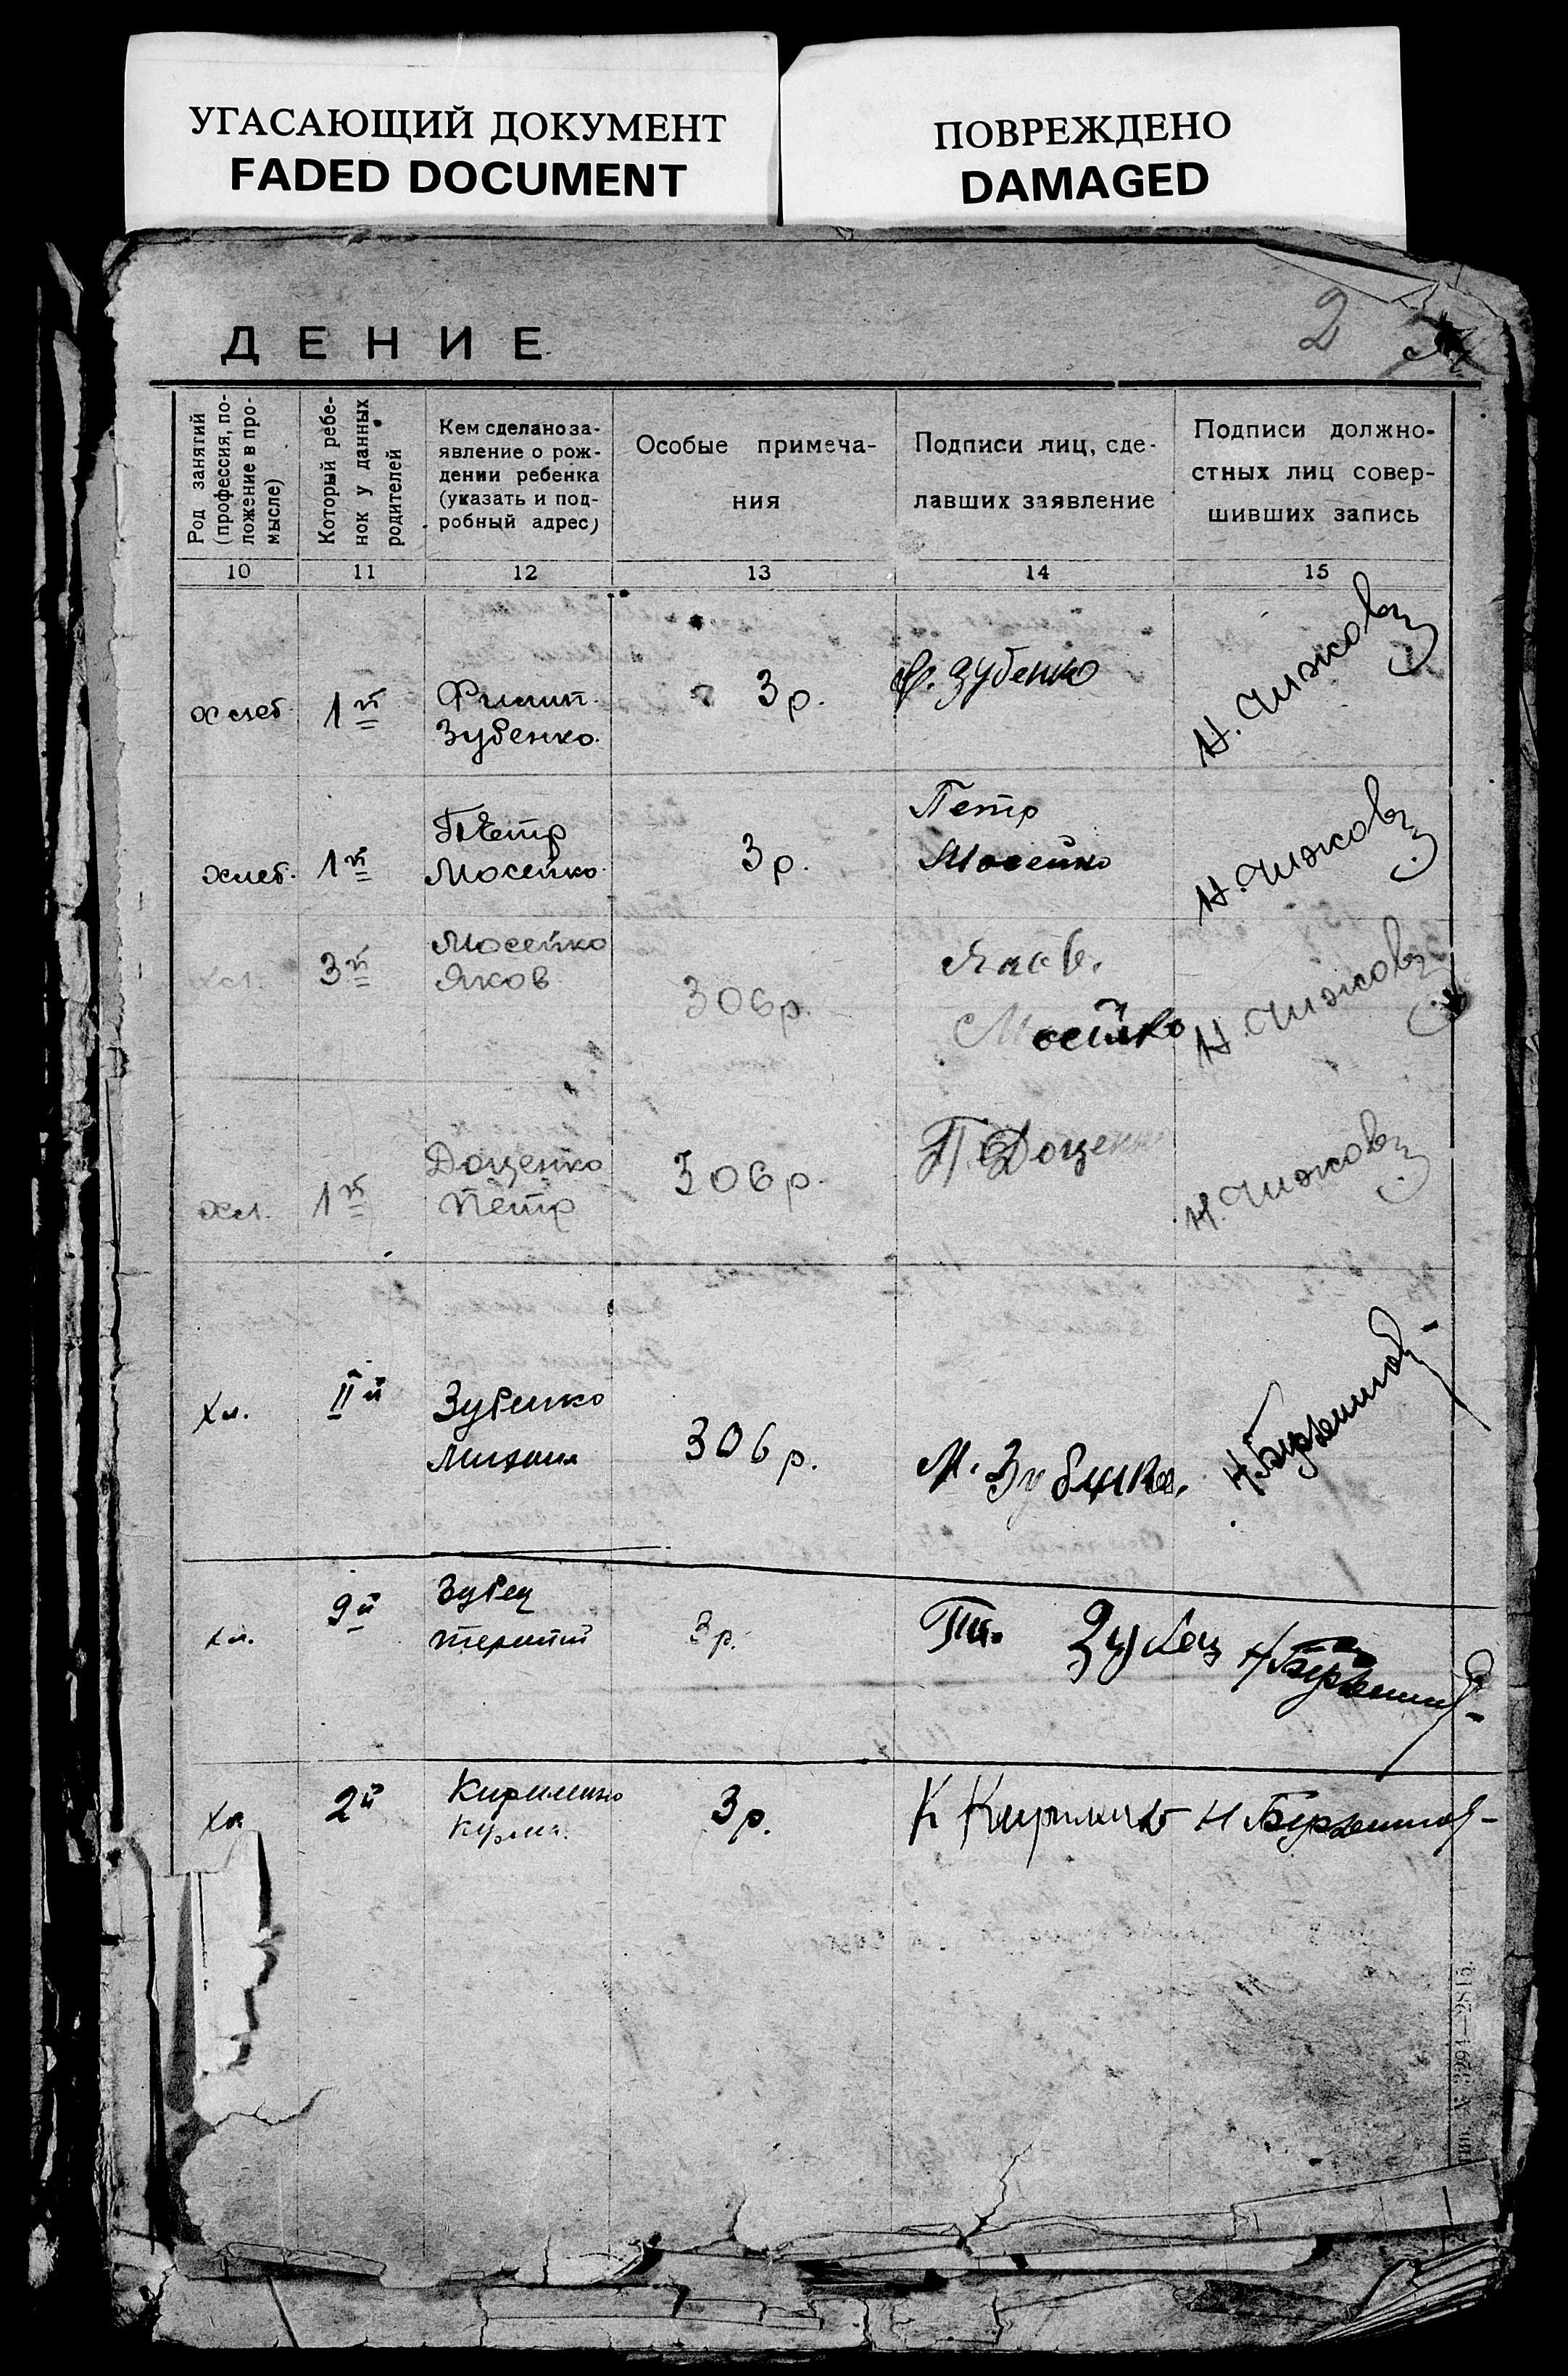 УГАСАЮЩИЙ ДОКУМЕНТ
FADED DOCUMENT
ПОВРЕЖДЕНО
DAMAGED
2
ДЕНИЕ
Род занятий
(профессия, по-
ложение в про-
мысле)
Который ребе-
нок у данных
родителей
Кем сделано за-
явление о рож-
дении ребенка
(указать и под-
робный адрес)
Особые примеча-
ния
Подписи лиц, сде-
лавших заявление
Подписи должно-
стных лиц совер-
шивших запись
10 11 12 13 14 15
хлеб. 1й Филип
Зубенко.
3р.
Ф. Зубенко
Н. Чижов
хлеб. 1й Петр
Мосейко.
3р.
Петр
Мосейко
Н. Чижов
хл. 3й Мосейко
Яков
306р.
Яков.
Мосейко
Н. Чижов
хл. 1й Доценко
Петр
306р.
П. Доценко
Н. Чижов
хл. IIй Зубенко
Михаил
306р.
М. Зубенко.
хл. 9й Зубец
3р.
Зубец
хл 2й Кириленко
3р.
К Кириленко
3291—2815.